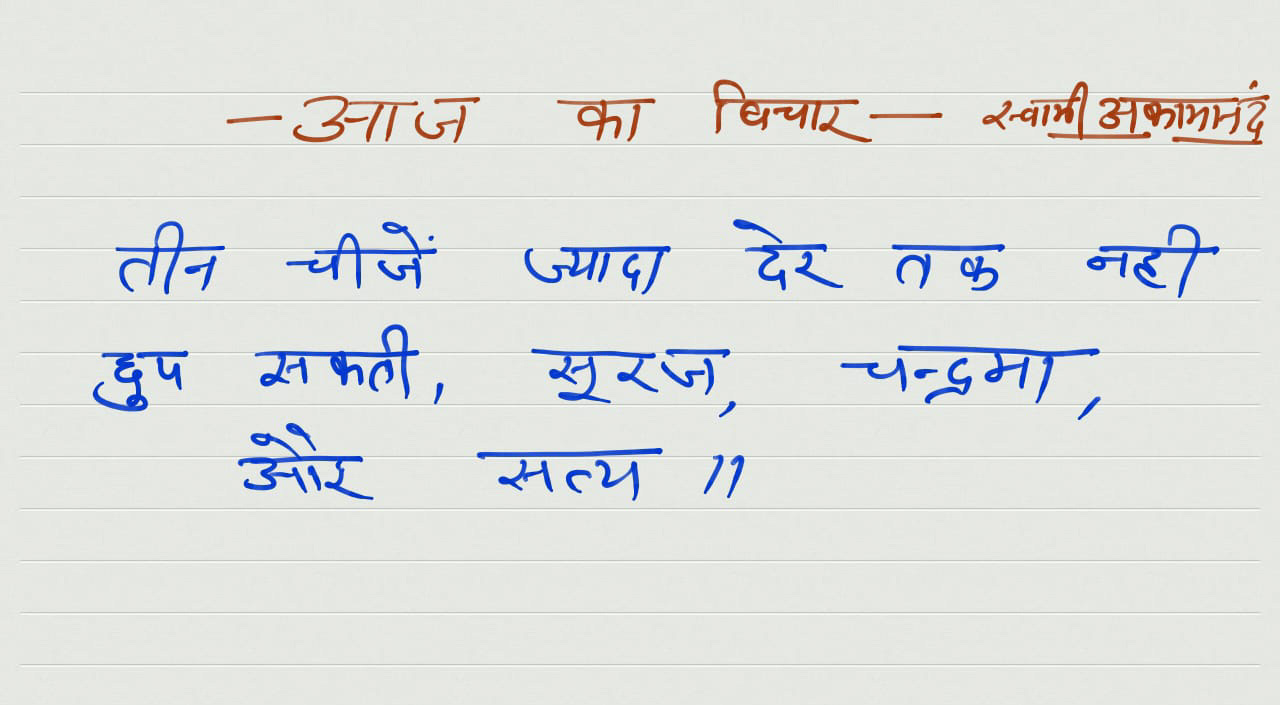 - आज का विचार - स्वामी अकामानंद
तीन चीजें ज्यादा देर तक नही
छुप सकती, सूरज, चन्द्रमा,
और सत्य ।।